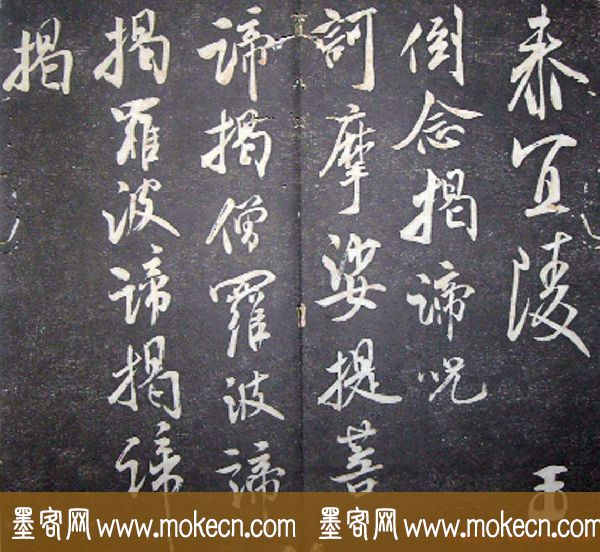 泰宜陵
倒念揭諦咒
訶摩娑提菩
諦揭僧羅波諦
揭羅波諦揭諦
揭
墨客网 www.mokecn.com 墨客网 www.mokecn.com